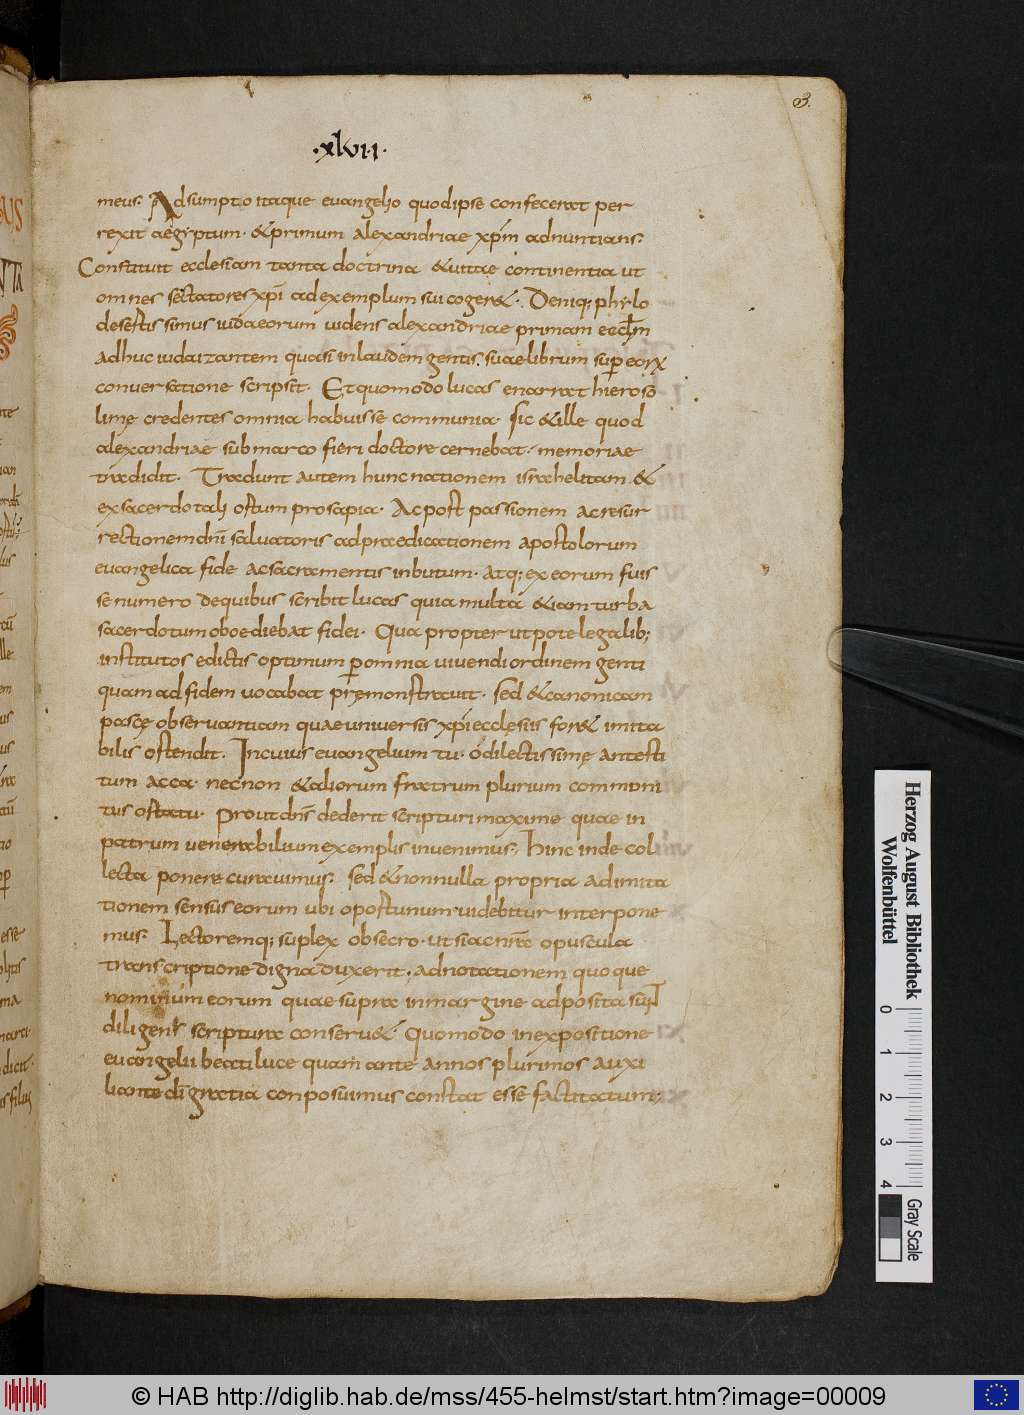 3.
·xlvii·
meus. Adsumpto itaque euangelio quod ipse confecerat per
rexit aegyptum. & primum alexandriae xp̄m adnuntians.
Constituit ecclesiam tanta doctrina & uitae continentia ut
omnes sectatores xp̄i ad exemplum sui coger&. Deniq; phylo
desertissimus iudaeorum uidens alexandriae primam eccl̄m
adhuc iudaizantem quasi in laudem gentis suae librum sup eorꝝ
conuersatione scripsit. Et quomodo lucas enarrat hieroso
limę credentes omnia habuisse communia. sic & ille quod
alexandriae sub marco fieri doctore cernebat. memoriae
tradidit. Tradunt autem hunc nationem israhelitam. &
ex sacerdotali ortum prosapia. Ac post passionem ac resur
rectionem dn̄i saluatoris ad praedicationem apostolorum
euangelica fide ac sacramentis inbutum. atq; ex eorum fuis
se numero de quibus scribit lucas quia multa &iam turba
sacerdotum oboediebat fidei. Qua propter utpote legalib;
institutos edictis optimum ꝑ omnia uiuendi ordinem genti
quam ad fidem uocabat pręmonstrauit. sed & canonicam
pascę obseruantiam quae uniuersis xp̄i ecclęsiis for& imita
bilis ostendit. In cuius euangelium tu. o dilectissime antesti
tum acca. nec non & aliorum fratrum plurium commoni
tus ortatu. prout dn̄s dederit scripturi maxime quae in
patrum uenerabilium exemplis inuenimus. hinc inde col
lecta ponere curauimus. sed & nonnulla propria ad imita
tionem sensus eorum ubi oportunum uidebitur interpone
mus. Lectoremq; suplex obsecro. ut si ac nr̄a opuscula
transcriptione digna duxerit. adnotationem quoque
nominum eorum quae supra in margine adposita sunt
diligent scriptura conseru&. Quomodo in expositione
euangelii beati luce quam ante annos plurimos auxi
liante dī gratia conposuimus constat esse factitatum.
Herzog August Bibliothek
Wolfenbüttel
0 1 2 3 4
Gray Scale
© HAB http://diglib.hab.de/mss/455-helmst/start.htm?image=00009